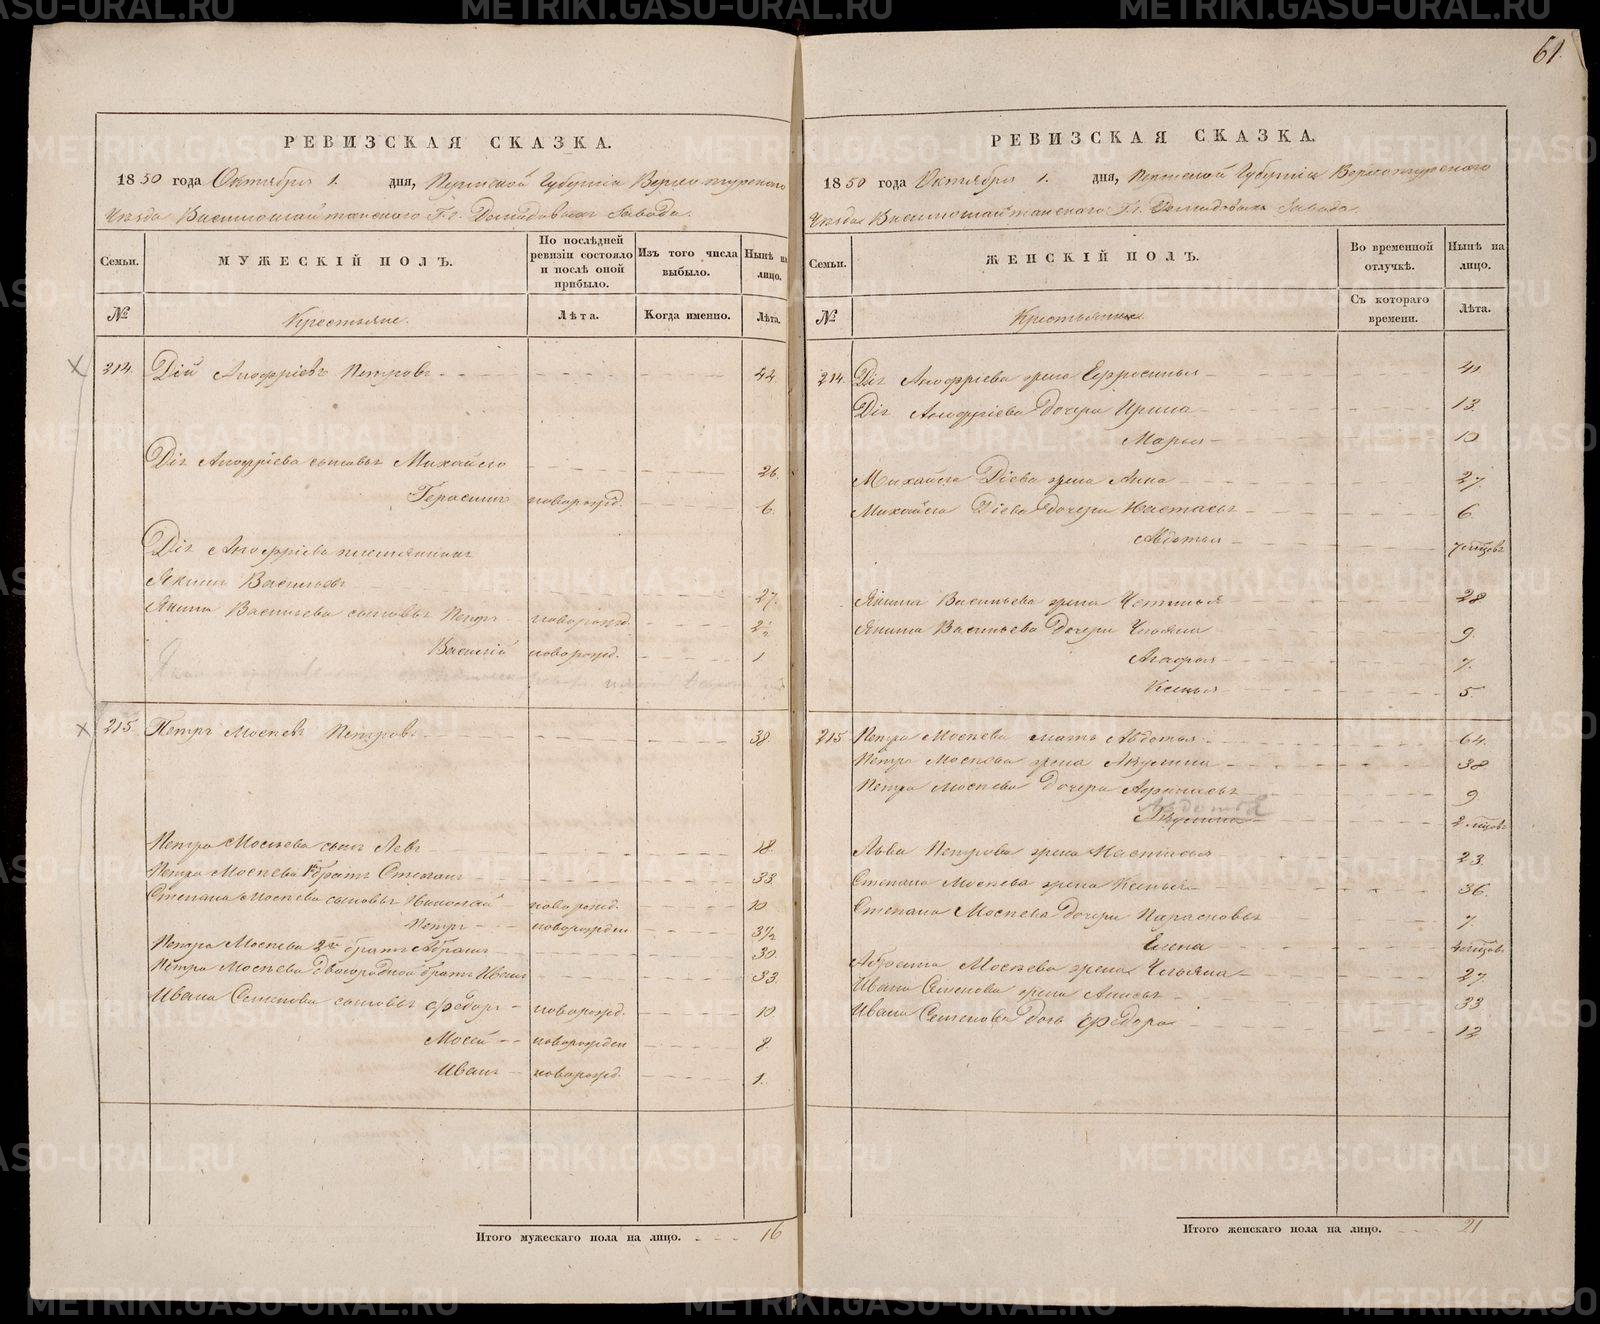 61.
РЕВИЗСКАЯ СКАЗКА.
1850 года Октября 1. дня, Пермской Губерніи Верхотурского
Уѣзда Висимошайтанского Гг. Демидовыхъ Завода.
Семьи.
МУЖЕСКІЙ ПОЛЪ.
По послѣдней ревизіи состояло и послѣ оной прибыло.
Изъ того числа выбыло.
Нынѣ на лицо.
№
Крестьяне.
Лѣта.
Когда именно.
Лѣта.
214. Дій Петровъ 44.
Михайло 26.
Герасимъ новорожд. 6.
Васильевъ 27.
Васильева сыновья Петръ новорожд. 2½
Василій новорожд. 1
215. Петръ Мосѣевъ Петровъ 38.
Петра Мосѣева сынъ Левъ 18.
Петра Мосѣева братъ Степанъ 33.
Степана Мосѣева сыновья Николай новорожд. 10
Петръ новорожден 3½
Петра Мосѣева 2й братъ Абрамъ 30.
Петра Мосѣева двоюродной братъ Иванъ 33.
Ивана Семенова сыновья Федоръ новорожд. 10
Мосей новорожден 8.
Иванъ новорожд. 1.
Итого мужескаго пола на лицо. 16
РЕВИЗСКАЯ СКАЗКА.
1850 года Октября 1. дня, Пермской Губерніи Верхотурского
Уѣзда Висимошайтанского Гг. Демидовыхъ Завода.
Семьи.
ЖЕНСКІЙ ПОЛЪ.
Во временной отлучкѣ.
Нынѣ на лицо.
№
Крестьянки
Съ котораго времени.
Лѣта.
214. жена Ефросинья 41.
дочери Ирина 13.
Марья 10
Михайла Діева жена Анна 27.
Михайла Діева дочери Настасья 6.
Авдотья 7 мѣсяцовъ
Васильева жена Устинья 28
Васильева дочери Ульяна 9.
Агафья 7.
Ксенья 5.
215 Петра Мосѣева мать Авдотья 64.
Петра Мосѣева жена Акулина 38
Петра Мосѣева дочери 9
Авдотья
Акулина 2 мѣсяцовъ
Льва Петрова жена Настасья 23.
Степана Мосѣева жена Ксенья 36.
Степана Мосѣева дочери Парасковья 7.
Елена
Абрама Мосѣева жена Ульяна 27.
Ивана Семенова жена Анисья 33
Ивана Семенова дочь Федора 12.
Итого женскаго пола на лицо. 21
METRIKI.GASO-URAL.RU